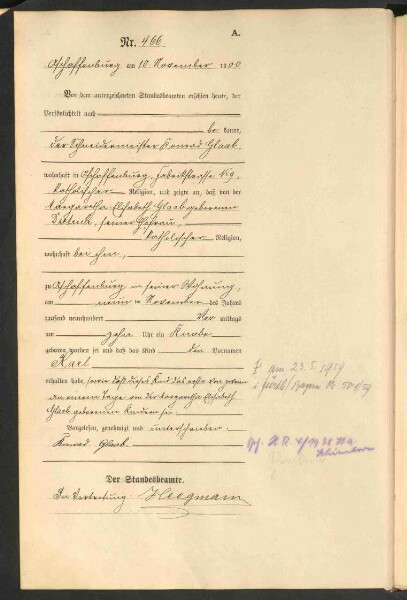 A.
Nr. 466.
Aschaffenburg am 10 November 1900
Vor dem unterzeichneten Standesbeamten erschien heute, der
Persönlichkeit nach
be kannt,
der Schneidermeister Konrad Glaab,
wohnhaft in Aschaffenburg, Fabrikstrasse No 9
katholischer Religion, und zeigte an, daß von der
Margaretha Elisabeth Glaab geborenen
seiner Ehefrau,
katholischer Religion,
wohnhaft bei ihm,
zu Aschaffenburg in seiner Wohnung,
am neun ten November des Jahres
tausend neunhundert Vor mittags
um zehn Uhr ein Knabe
geboren worden sei und daß das Kind den Vornamen
Karl
erhalten habe, sowie daß dieses Kind das erste von zweien
an einem Tage von der Margaretha Elisabeth
Glaab geborenen Kindern sei
Vorgelesen, genehmigt und unterschrieben
Konrad Glaab
Der Standesbeamte.
In Vertretung: Hoegmann
am 23.5.1959